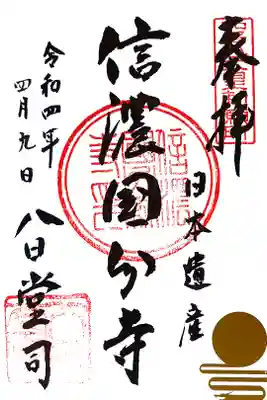 奉拝
日本遺産
信濃国分寺
令和四年
四月九日
八日堂司